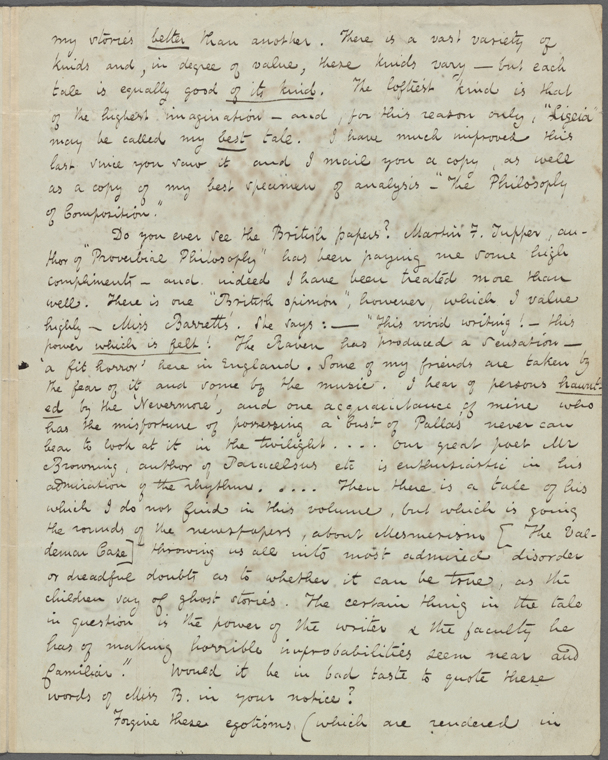 my stories better than another. There is a vast variety of
kinds and, in degree of value, these kinds vary — but each
tale is equally good of its kind. The loftiest kind is that
of the highest imagination — and, for this reason only, "Ligeia"
may be called my best tale. I have much improved this
last since you saw it and I mail you a copy, as well
as a copy of my best specimen of analysis — "The Philosophy
of Composition."
Do you ever see the British papers? Martin F. Tupper, au-
thor of "Proverbial Philosophy" has been paying me some high
compliments — and indeed I have been treated more than
well. There is one "British opinion", however, which I value
highly — Miss Barrett's. She says: — "This vivid writing! — this
power which is felt! The Raven has produced a sensation —
'a fit horror' here in England. Some of my friends are taken by
the fear of it and some by the music. I hear of persons haunt-
ed by the 'Nevermore', and one acquaintance of mine who
has the misfortune of possessing a bust of Pallas never can
bear to look at it in the twilight. . . . Our great poet Mr
Browning, author of Paracelsus etc is enthusiastic in his
admiration of the rhythm. . . . . Then there is a tale of his
which I do not find in this volume, but which is going
the rounds of the newspapers, about Mesmerism [The Val-
demar Case] throwing us all into most admired disorder
or dreadful doubts as to whether it can be true, as the
children say of ghost stories. The certain thing in the tale
in question is the power of the writer & the faculty he
has of making horrible improbabilities seem near and
familiar." Would it be in bad taste to quote these
words of Miss B. in your notice?
Forgive these egotisms (which are rendered in